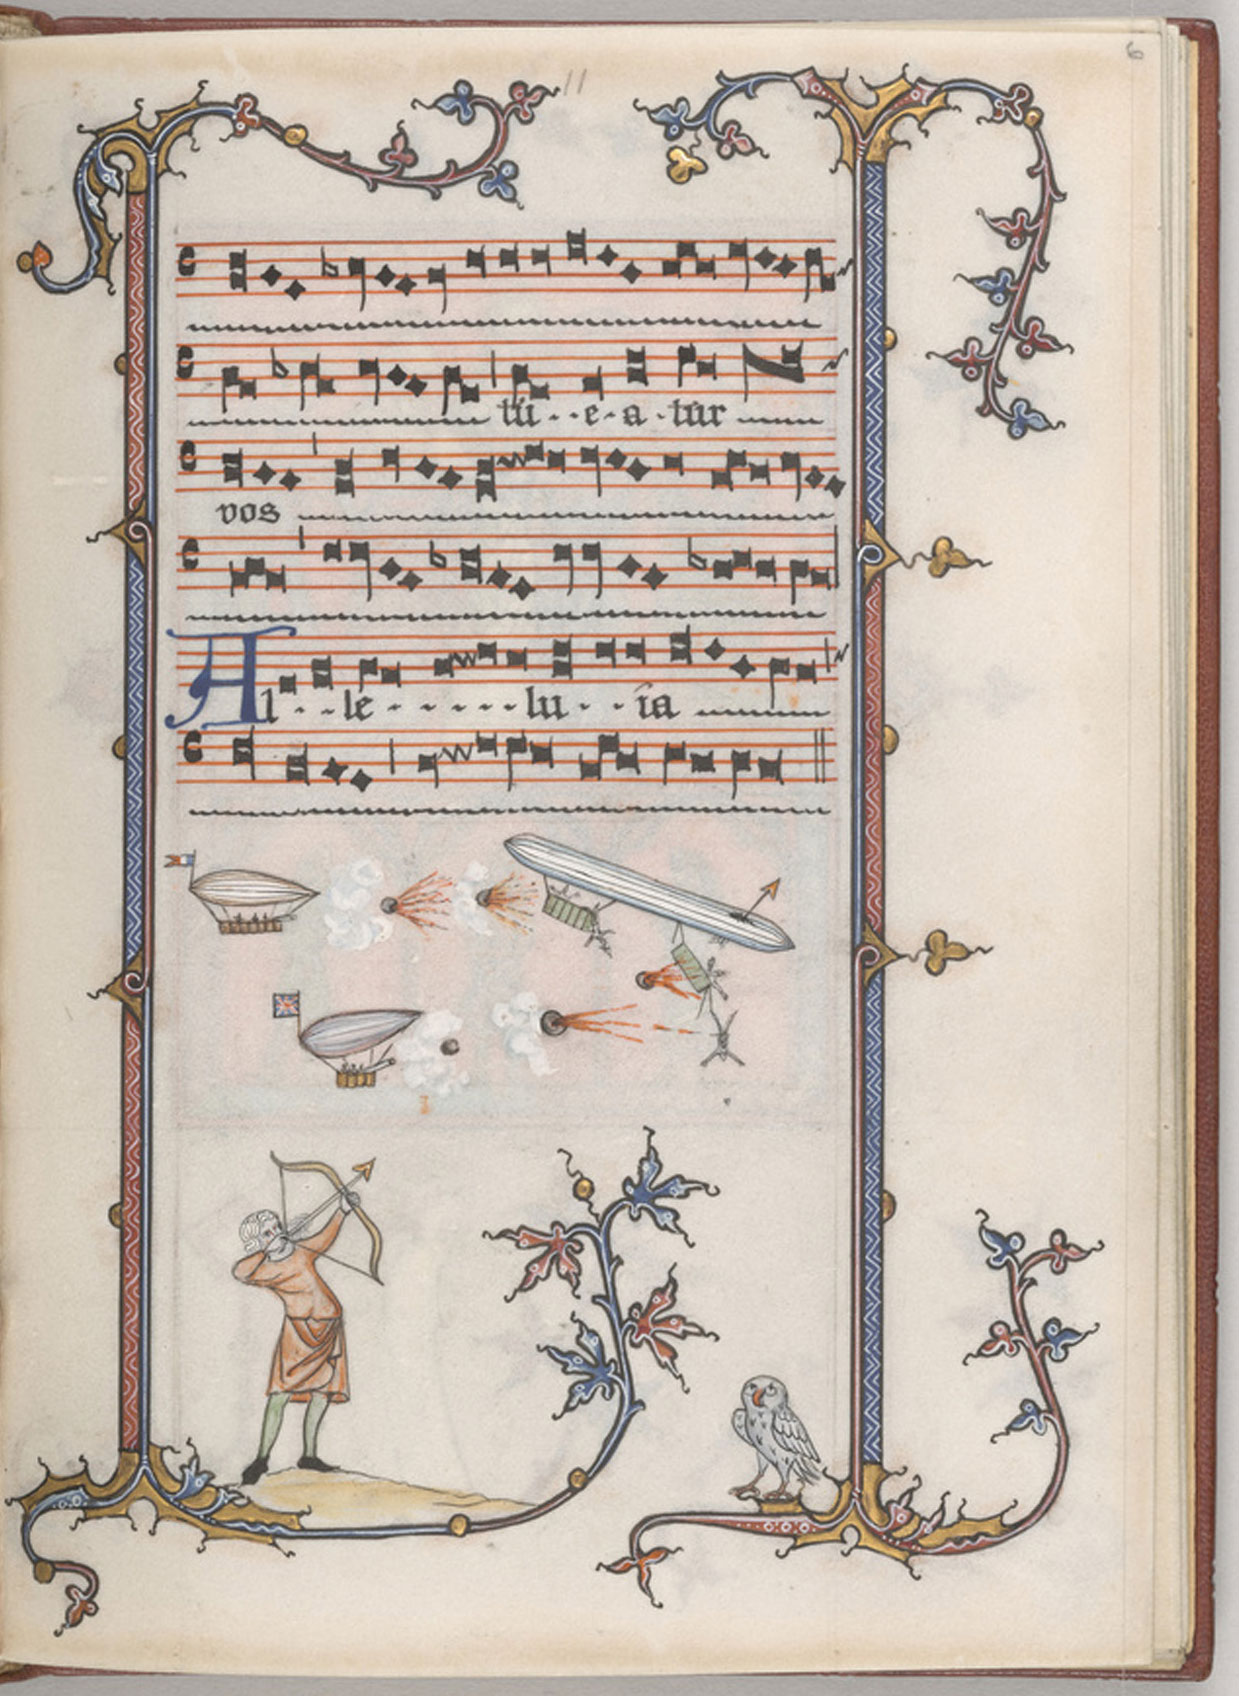 6
11
tu--e-a-tur
vos
Al--le------lu---ia